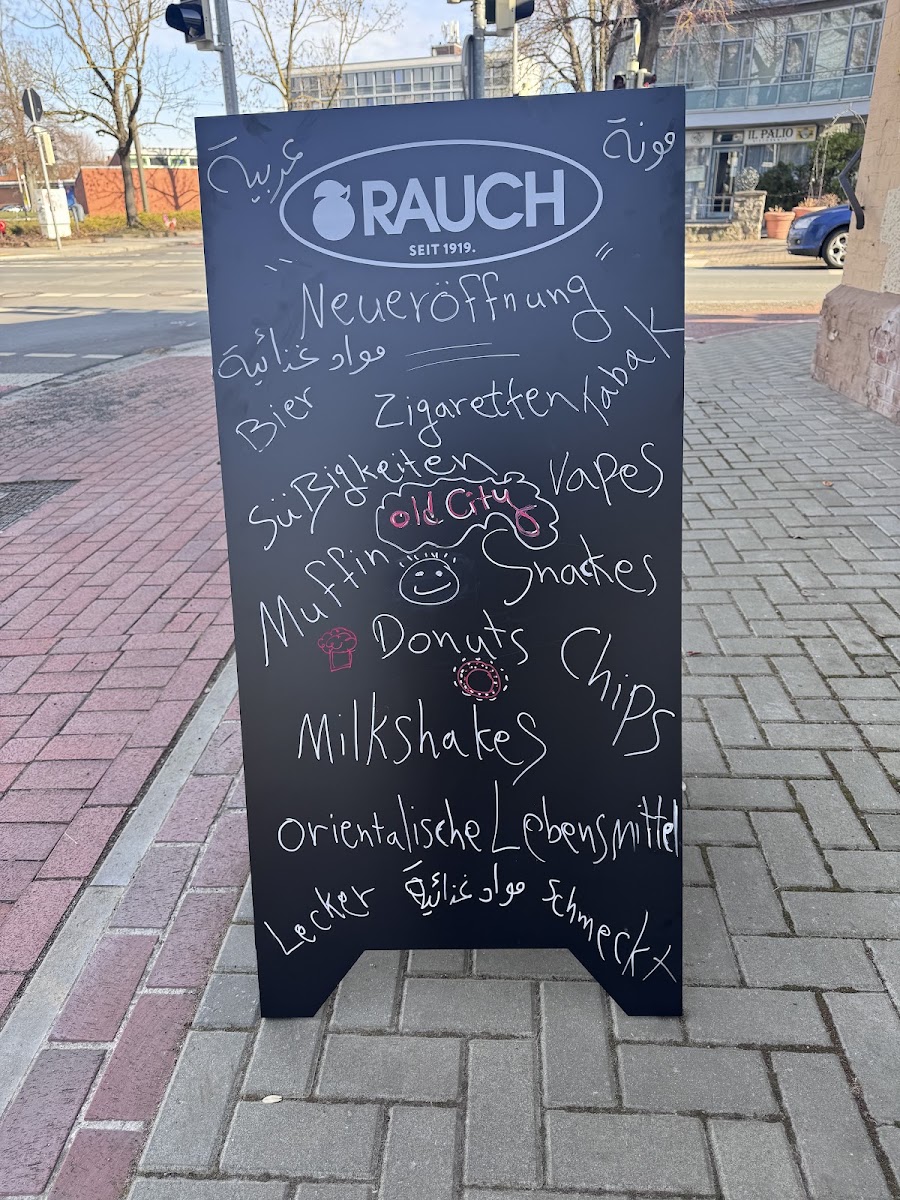 عربية
مونة
RAUCH
SEIT 1919.
"Neueröffnung"
مواد غذائية
Bier
Zigaretten
Tabak
Süßigkeiten
Vapes
Old City
Muffin
Snackes
Donuts
Chips
Milkshakes
Orientalische Lebensmittel
Lecker
مواد غذائية
Schmeckt
IL PALIO